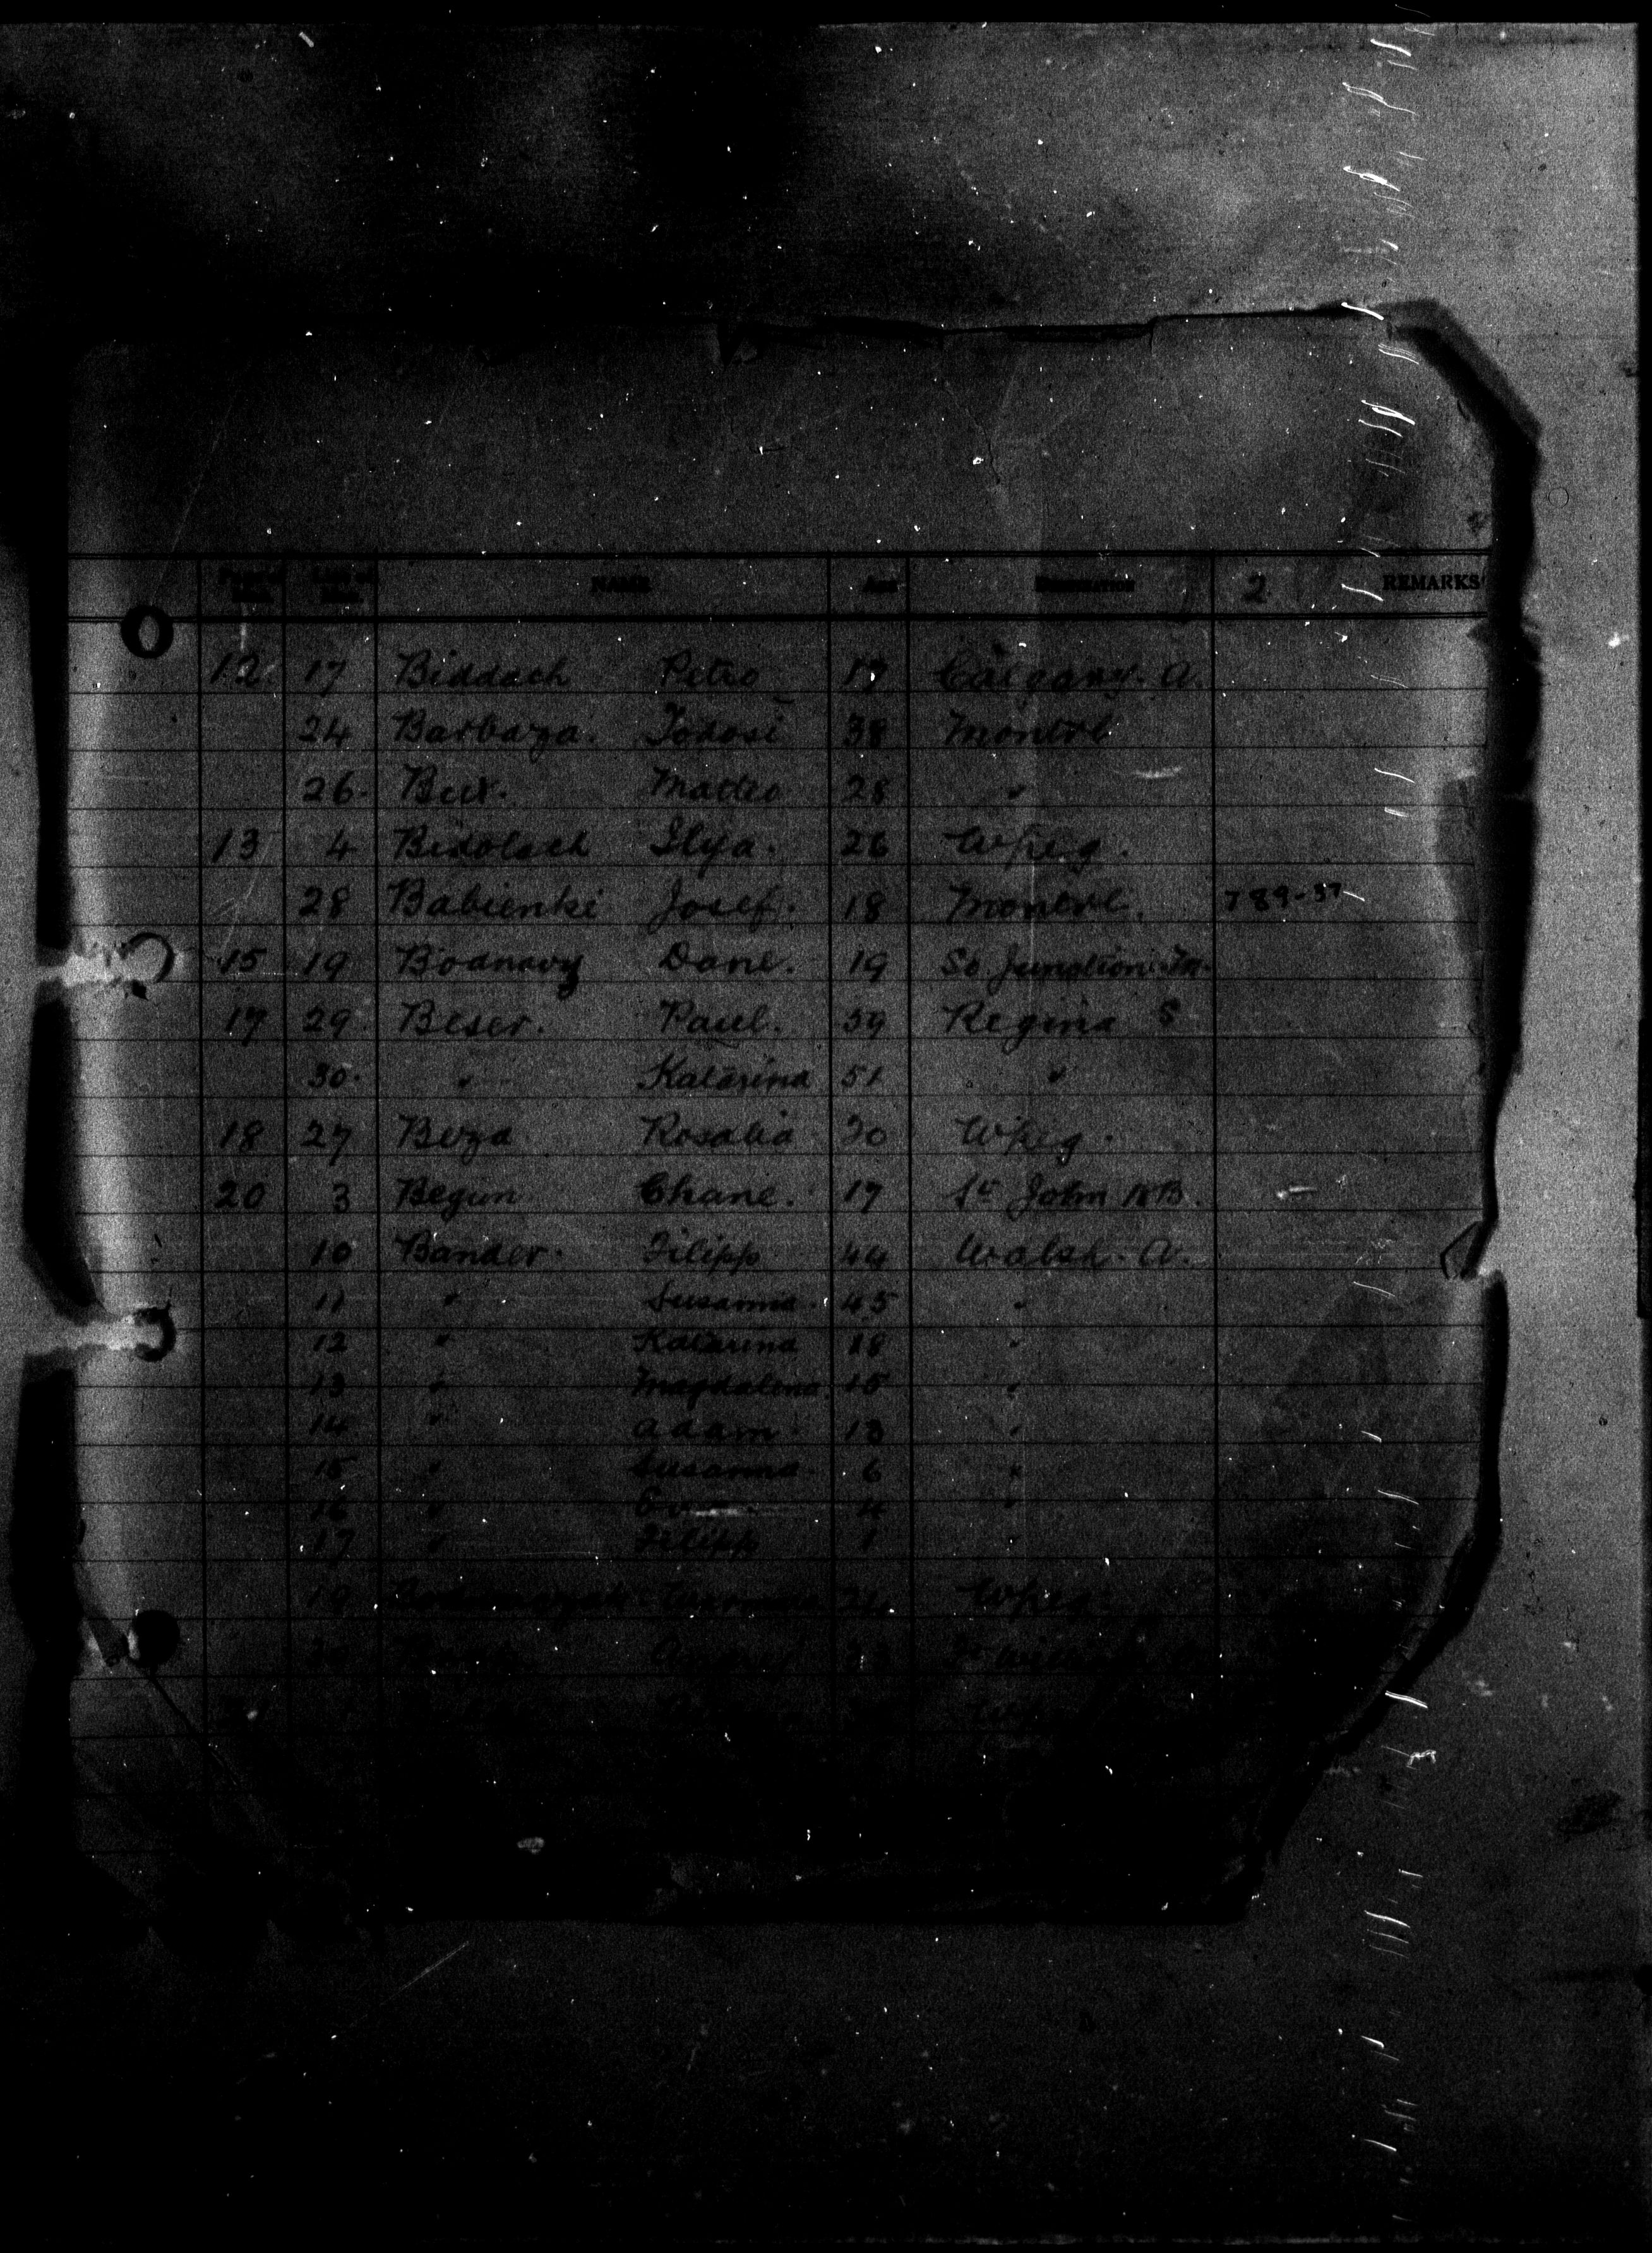 NAME AGE DESTINATION 2 REMARKS
12 17 Biddach Petro 17 Calgary. A.
24 Barbaza. Todosi 38 Montrl
26. But. Matteo 28 "
13 4 Bidolach Ilya. 26 Wpeg.
28 Babienki Josef. 18 Montrl. 789-37
15 19 Bodnavy Dane. 19 So. Junction. M.
17 29. Beser. Paul. 59 Regina S
30. " Katarina 51 "
18 27 Boza Rosalia 30 Wpeg.
20 3 Begun Chane. 17 St John N.B.
10 Bander. Filipp 44 Walsh. A.
11 " Susanna. 45 "
12 " Katarina 18 "
13 " Magdalena 15 "
14 " Adam. 13 "
15 " Susanna. 6 "
16 " 4 "
17 " Filipp 1 "
19 Wpeg.